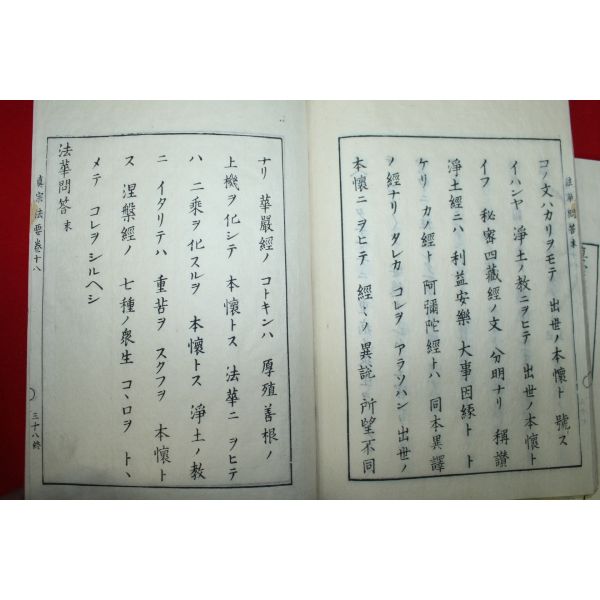 コノ文ハカリヲモテ 出世ノ本懷ト 號ス
イハンヤ 淨土ノ教ニヲヒテ 出世ノ本懷ト
イフ 秘密四藏經ノ文 分明ナリ 稱讃
淨土經ニハ 利益安樂 大事因縁ト ト
ケリ カノ經ト 阿彌陀經トハ 同本異譯
ノ經ナリ タレカ コレヲ アラソハン 出世ノ
本懷ニ ヲヒテ 經〻ノ 異説 所望不同
ナリ 華嚴經ノ コトキンハ 厚殖善根ノ
上機ヲ 化シテ 本懷トス 法華ニ ヲヒテ
ハ 二乘ヲ 化スルヲ 本懷トス 淨土ノ教
ニ イタリテハ 重苦ヲ スクフヲ 本懷ト
ス 涅槃經ノ 七種ノ衆生 コヽロヲ トヽ
メテ コレヲ シルヘシ
法華問答 末
眞宗法要卷十八
三十八終